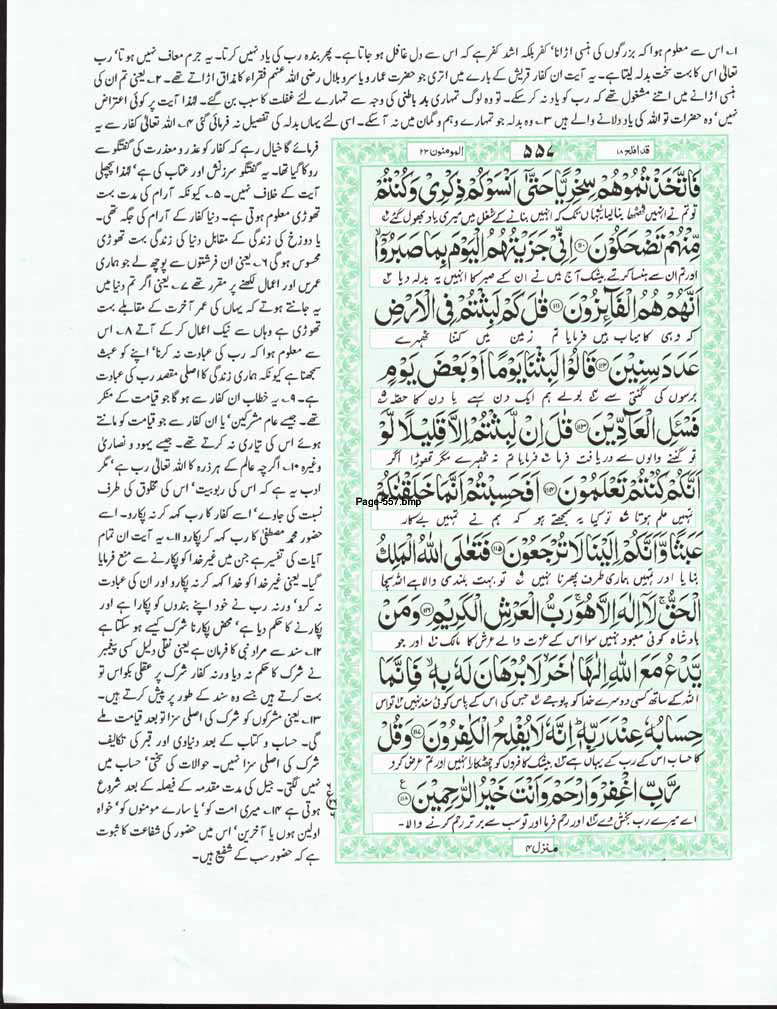 ۱۔ اس سے معلوم ہوا کہ بزرگوں کی ہنسی اڑانا' کفر بلکہ اشد کفر ہے کہ اس سے دل غافل ہو جاتا ہے۔ پھر بندہ رب کی یاد نہیں کرتا۔ یہ جرم معاف نہیں ہوتا' رب
تعالیٰ اس کا بہت سخت بدلہ لیتا ہے۔ یہ آیت ان کفار قریش کے بارے میں اتری جو حضرت عمار و یاسر و بلال رضی اللہ عنہم فقراء کا مذاق اڑاتے تھے۔ ۲۔ یعنی تم ان کی
ہنسی اڑانے میں اتنے مشغول تھے کہ رب کو یاد نہ کر سکے۔ تو وہ لوگ تمہاری بد باطنی کی وجہ سے تمہارے لئے غفلت کا سبب بن گئے۔ لہٰذا آیت پر کوئی اعتراض
نہیں' وہ حضرات تو اللہ کی یاد دلانے والے ہیں ۳۔ وہ بدلہ جو تمہارے وہم و گمان میں نہ آ سکے۔ اسی لئے یہاں بدلہ کی تفصیل نہ فرمائی گئی ۴۔ اللہ تعالیٰ کفار سے یہ
قد افلح ۱۸
۵۵۷
المومنون ۲۳
فَاتَّخَذْتُمُوْهُمْ سِخْرِيًّا حَتّٰٓى اَنْسَوْكُمْ ذِكْرِيْ وَكُنْتُمْ
تو تم نے انہیں ٹھٹھا بنا لیا یہاں تک کہ انہیں بنانے کے شغل میں میری یاد بھول گئے
مِّنْهُمْ تَضْحَكُوْنَ ۝۱۱۰ اِنِّيْ جَزَيْتُهُمُ الْيَوْمَ بِمَا صَبَرُوْٓا
اور تم ان سے ہنسا کرتے بیشک آج میں نے ان کے صبر کا انہیں یہ بدلہ دیا
اَنَّهُمْ هُمُ الْفَآئِزُوْنَ ۝۱۱۱ قٰلَ كَمْ لَبِثْتُمْ فِي الْاَرْضِ
کہ وہی کامیاب ہیں فرمایا تم زمین میں کتنا ٹھہرے
عَدَدَ سِنِيْنَ ۝۱۱۲ قَالُوْا لَبِثْنَا يَوْمًا اَوْ بَعْضَ يَوْمٍ
برسوں کی گنتی سے بولے ہم ایک دن رہے یا دن کا حصہ
فَسْـَٔلِ الْعَآدِّيْنَ ۝۱۱۳ قٰلَ اِنْ لَّبِثْتُمْ اِلَّا قَلِيْلًا لَّوْ
تو گننے والوں سے دریافت فرما فرمایا تم نہ ٹھہرے مگر تھوڑا اگر
اَنَّكُمْ كُنْتُمْ تَعْلَمُوْنَ ۝۱۱۴ اَفَحَسِبْتُمْ اَنَّمَا خَلَقْنٰكُمْ
Page-557.bmp
تمہیں علم ہوتا تو کیا یہ سمجھتے ہو کہ ہم نے تمہیں بے کار
عَبَثًا وَّاَنَّكُمْ اِلَيْنَا لَا تُرْجَعُوْنَ ۝۱۱۵ فَتَعٰلَى اللّٰهُ الْمَلِكُ
بنایا اور تمہیں ہماری طرف پھرنا نہیں تو بہت بلندی والا ہے اللہ سچا
الْحَقُّ ۚ لَآ اِلٰهَ اِلَّا هُوَ ۚ رَبُّ الْعَرْشِ الْكَرِيْمِ ۝۱۱۶ وَمَنْ
بادشاہ کوئی معبود نہیں سوا اس کے عزت والے عرش کا مالک اور جو
يَّدْعُ مَعَ اللّٰهِ اِلٰهًا اٰخَرَ ۙ لَا بُرْهَانَ لَهٗ بِهٖ ۙ فَاِنَّمَا
اللہ کے ساتھ کسی دوسرے خدا کو پوجے جس کی اس کے پاس کوئی سند نہیں تو اس
حِسَابُهٗ عِنْدَ رَبِّهٖ ۭ اِنَّهٗ لَا يُفْلِحُ الْكٰفِرُوْنَ ۝۱۱۷ وَقُلْ
کا حساب اس کے رب کے یہاں ہے بیشک کافروں کو چھٹکارا نہیں اور تم عرض کرو
رَّبِّ اغْفِرْ وَارْحَمْ وَاَنْتَ خَيْرُ الرّٰحِمِيْنَ ۝۱۱۸
اے میرے رب بخش دے اور رحم فرما اور تو سب سے برتر رحم کرنے والا۔
منزل ۴
فرمائے گا خیال رہے کہ کفار کو عذر و معذرت کی گفتگو سے
روکا گیا تھا۔ یہ گفتگو سرزنش اور عتاب کی ہے' لہٰذا پچھلی
آیت کے خلاف نہیں۔ ۵۔ کیونکہ آرام کی مدت بہت
تھوڑی معلوم ہوتی ہے۔ دنیا کفار کے آرام کی جگہ تھی۔
یا دوزخ کی زندگی کے مقابل دنیا کی زندگی بہت تھوڑی
محسوس ہو گی ۶۔ یعنی ان فرشتوں سے پوچھ لے جو ہماری
عمریں اور اعمال لکھنے پر مقرر تھے ۷۔ یعنی اگر تم دنیا میں
یہ جانتے ہوتے کہ یہاں کی عمر آخرت کے مقابلے بہت
تھوڑی ہے تو وہاں سے نیک اعمال کر کے آتے ۸۔ اس
سے معلوم ہوا کہ رب کی عبادت نہ کرنا' اپنے کو عبث
سمجھنا ہے کیونکہ ہماری زندگی کا اصلی مقصد رب کی عبادت
ہے۔ ۹۔ یہ خطاب ان کفار سے ہو گا جو قیامت کے منکر
تھے۔ جیسے عام مشرکین' یا ان کفار سے جو قیامت کو مانتے
ہوئے اس کی تیاری نہ کرتے تھے۔ جیسے یہود و نصاریٰ
وغیرہ ۱۰۔ اگرچہ عالم کے ہر ذرہ کا اللہ تعالیٰ رب ہے' مگر
ادب یہ ہے کہ اس کی ربوبیت' اس کی مخلوق کی طرف
نسبت کی جاوے' اسے کفار کا رب کہہ کر نہ پکارو۔ اسے
حضور محمد مصطفیٰ کا رب کہہ کر پکارو ۱۱۔ یہ آیت ان تمام
آیات کی تفسیر ہے جن میں غیر خدا کو پکارنے سے منع فرمایا
گیا۔ یعنی غیر خدا کو خدا کہہ کر نہ پکارو اور ان کی عبادت
نہ کرو' ورنہ رب نے خود اپنے بندوں کو پکارا ہے اور
پکارنے کا حکم دیا ہے' محض پکارنا شرک کیسے ہو سکتا ہے
۱۲۔ سند سے مراد نبی کا فرمان ہے یعنی نقلی دلیل کسی پیغمبر
نے شرک کا حکم نہ دیا ورنہ کفار شرک پر عقلی بکواس تو
بہت کرتے ہیں جسے وہ سند کے طور پر پیش کرتے ہیں۔
۱۳۔ یعنی مشرکوں کو شرک کی اصلی سزا تو بعد قیامت ملے
گی۔ حساب و کتاب کے بعد دنیاوی اور قبر کی تکالیف
شرک کی اصلی سزا نہیں۔ حوالات کی سختی' حساب میں
نہیں لگتی۔ جیل کی مدت مقدمہ کے فیصلہ کے بعد شروع
ہوتی ہے ۱۴۔ میری امت کو' یا سارے مومنوں کو' خواہ
اولین ہوں یا آخرین' اس میں حضور کی شفاعت کا ثبوت
ہے کہ حضور سب کے شفیع ہیں۔